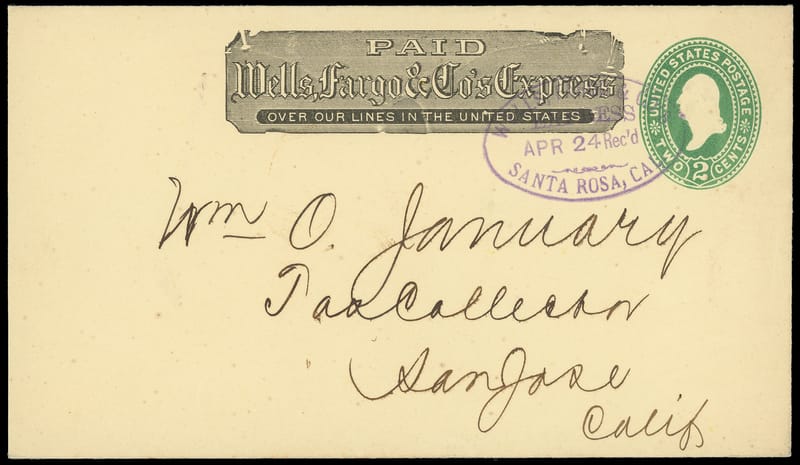 PAID
Wells, Fargo & Co's Express
OVER OUR LINES IN THE UNITED STATES
UNITED STATES POSTAGE
TWO 2 CENTS
EXPRESS
APR 24 Rec'd
SANTA ROSA, CAL
Wm O. January
Tax Collector
San Jose
Calif